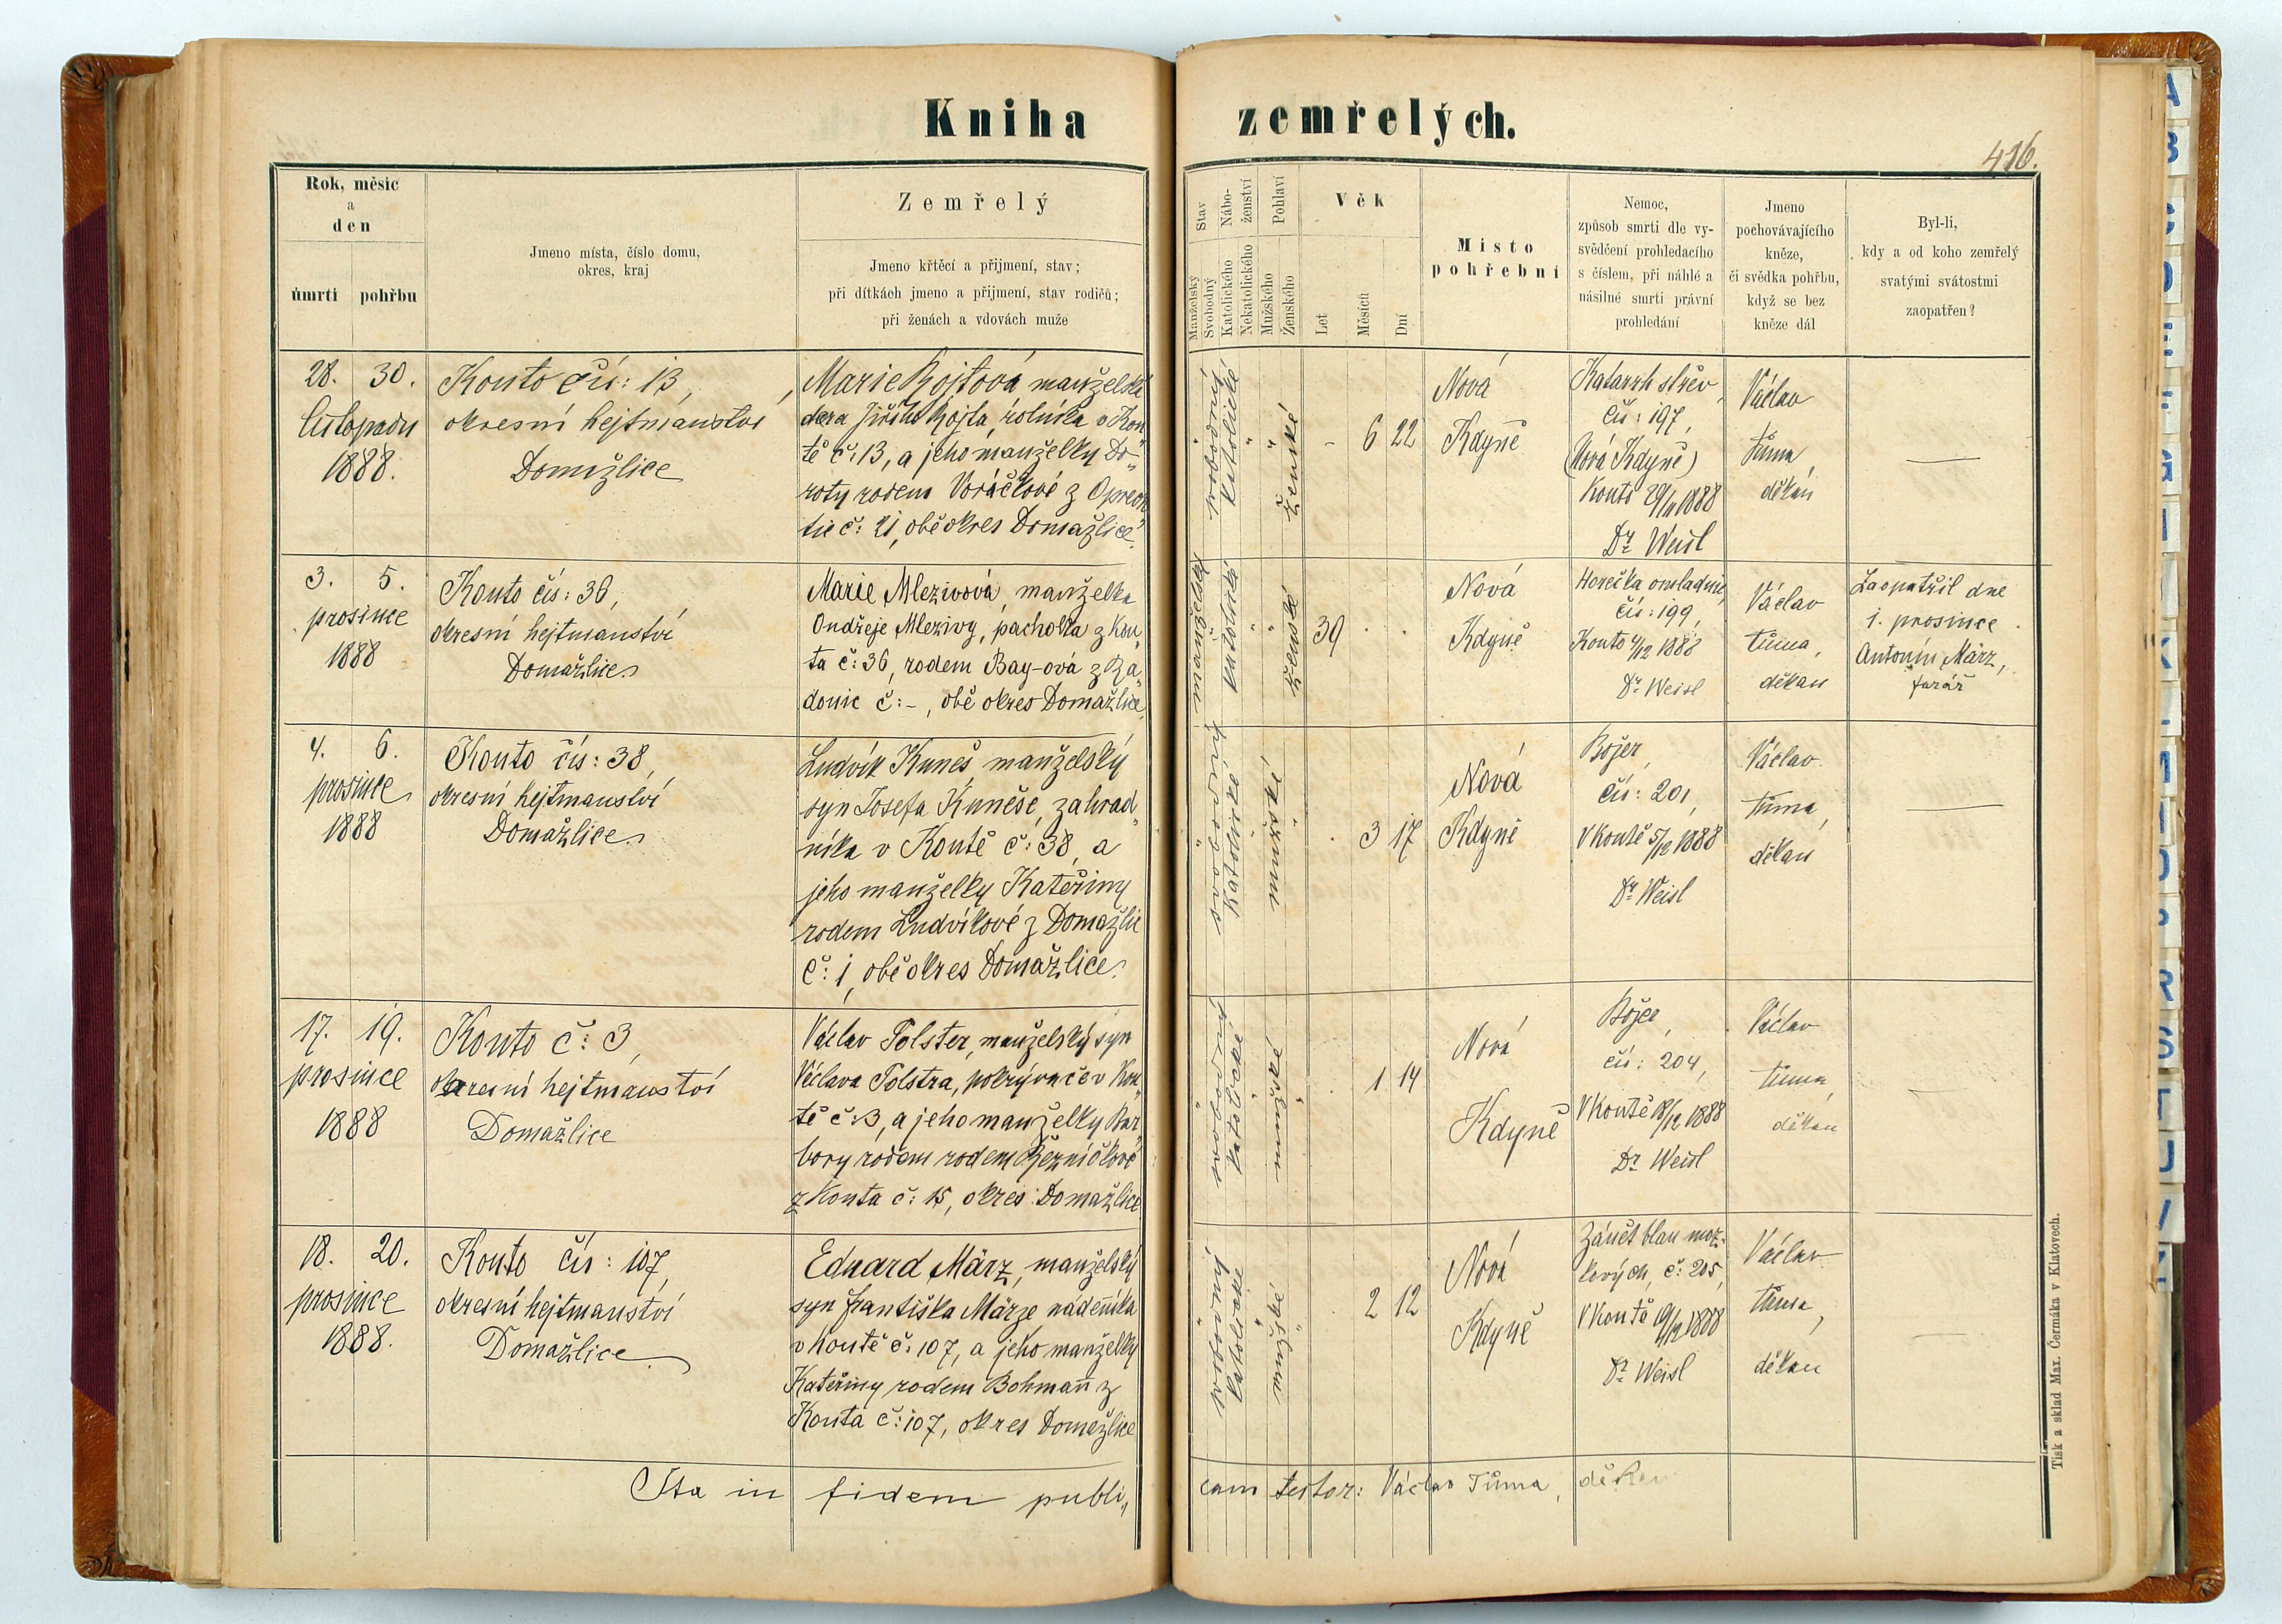 Kniha zemřelých.
416.
Rok, měsíc
a
den
úmrtí pohřbu
Jmeno místa, číslo domu,
okres, kraj
Zemřelý
Jmeno křtěcí a přijmení, stav;
při dítkách jmeno a přijmení, stav rodičů;
při ženách a vdovách muže
Stav
Manželský
Svobodný
Nábo-
ženství
Katolického
Nekatolického
Pohlaví
Mužského
Ženského
Věk
Let
Měsíců
Dní
Místo
pohřební
Nemoc,
způsob smrti dle vy-
svědčení prohledacího
s číslem, při náhlé a
násilné smrti právní
prohledání
Jmeno
pochovávajícího
kněze,
či svědka pohřbu,
když se bez
kněze dál
Byl-li,
kdy a od koho zemřelý
svatými svátostmi
zaopatřen?
28. 30.
listopadu
1888.
Kouto čís: 13,
okresní hejtmanství
Domažlice
Marie Kojtová manželská
dcera Jiřího Kojta, rolníka v Kou„
tě č: 13, a jeho manželky Do„
roty rodem Voráčkové z
č: 21, obě okres Domažlice.
svobodný
katolické
ženské
- 6 22
Nová
Kdyně
Katarrh střev
čís: 197,
(Nová Kdyně)
Kouto 29/11 1888
Dr Weisl
Václav
Tůma,
děkan
—
3. 5.
prosince
1888
Kouto čís: 36,
okresní hejtmanství
Domažlice
Marie Mlezivová, manželka
Ondřeje Mlezivy, pacholka z Kou„
ta č: 36, rodem Bay-ová z Ra„
donic č: -, obě okres Domažlice
manželský
katolické
ženské
39
Nová
Kdyně
Horečka omladnic,
čís: 199,
Kouto 4/12 1888
Dr Weisl
Václav
Tůma,
děkan
Zaopatřil dne
1. prosince
Antonín März,
farář
4. 6.
prosince
1888
Kouto čís: 38,
okresní hejtmanství
Domažlice
Ludvík Kuneš, manželský
syn Josefa Kuneše, zahrad„
níka v Koutě č: 38, a
jeho manželky Kateřiny
rodem Ludvíkové z Domažlic
č: 1, obě okres Domažlice.
svobodný
katolické
mužské
3 17
Nová
Kdyně
čís: 201,
V Koutě 5/12 1888
Dr Weisl
Václav
Tůma,
děkan
—
17. 19.
prosince
1888
Kouto č: 3,
okresní hejtmanství
Domažlice
Václav Polster, manželský syn
Václava Polstra, pokrývače v Kou„
tě č: 3, a jeho manželky Bar„
bory rodem rodem Řezníčkové
z Kouta č: 15, okres Domažlice
svobodný
katolické
mužské
1 14
Nová
Kdyně
čís: 204,
V Koutě 18/12 1888
Dr Weisl
Václav
Tůma,
děkan
—
18. 20.
prosince
1888.
Kouto čís: 107,
okresní hejtmanství
Domažlice
Eduard März, manželský
syn Františka Märze nádeníka
v Koutě č: 107, a jeho manželky
Kateřiny rodem Bohmann z
Kouta č: 107, okres Domažlice
svobodný
katolické
mužské
2 12
Nová
Kdyně
Zánět blan moz-
kových, č: 205,
V Koutě 19/12 1888
Dr Weisl
Václav
Tůma,
děkan
—
Ita in fidem publi„ cam testor: Václav Tůma, děkan
Tisk a sklad Max. Čermáka v Klatovech.